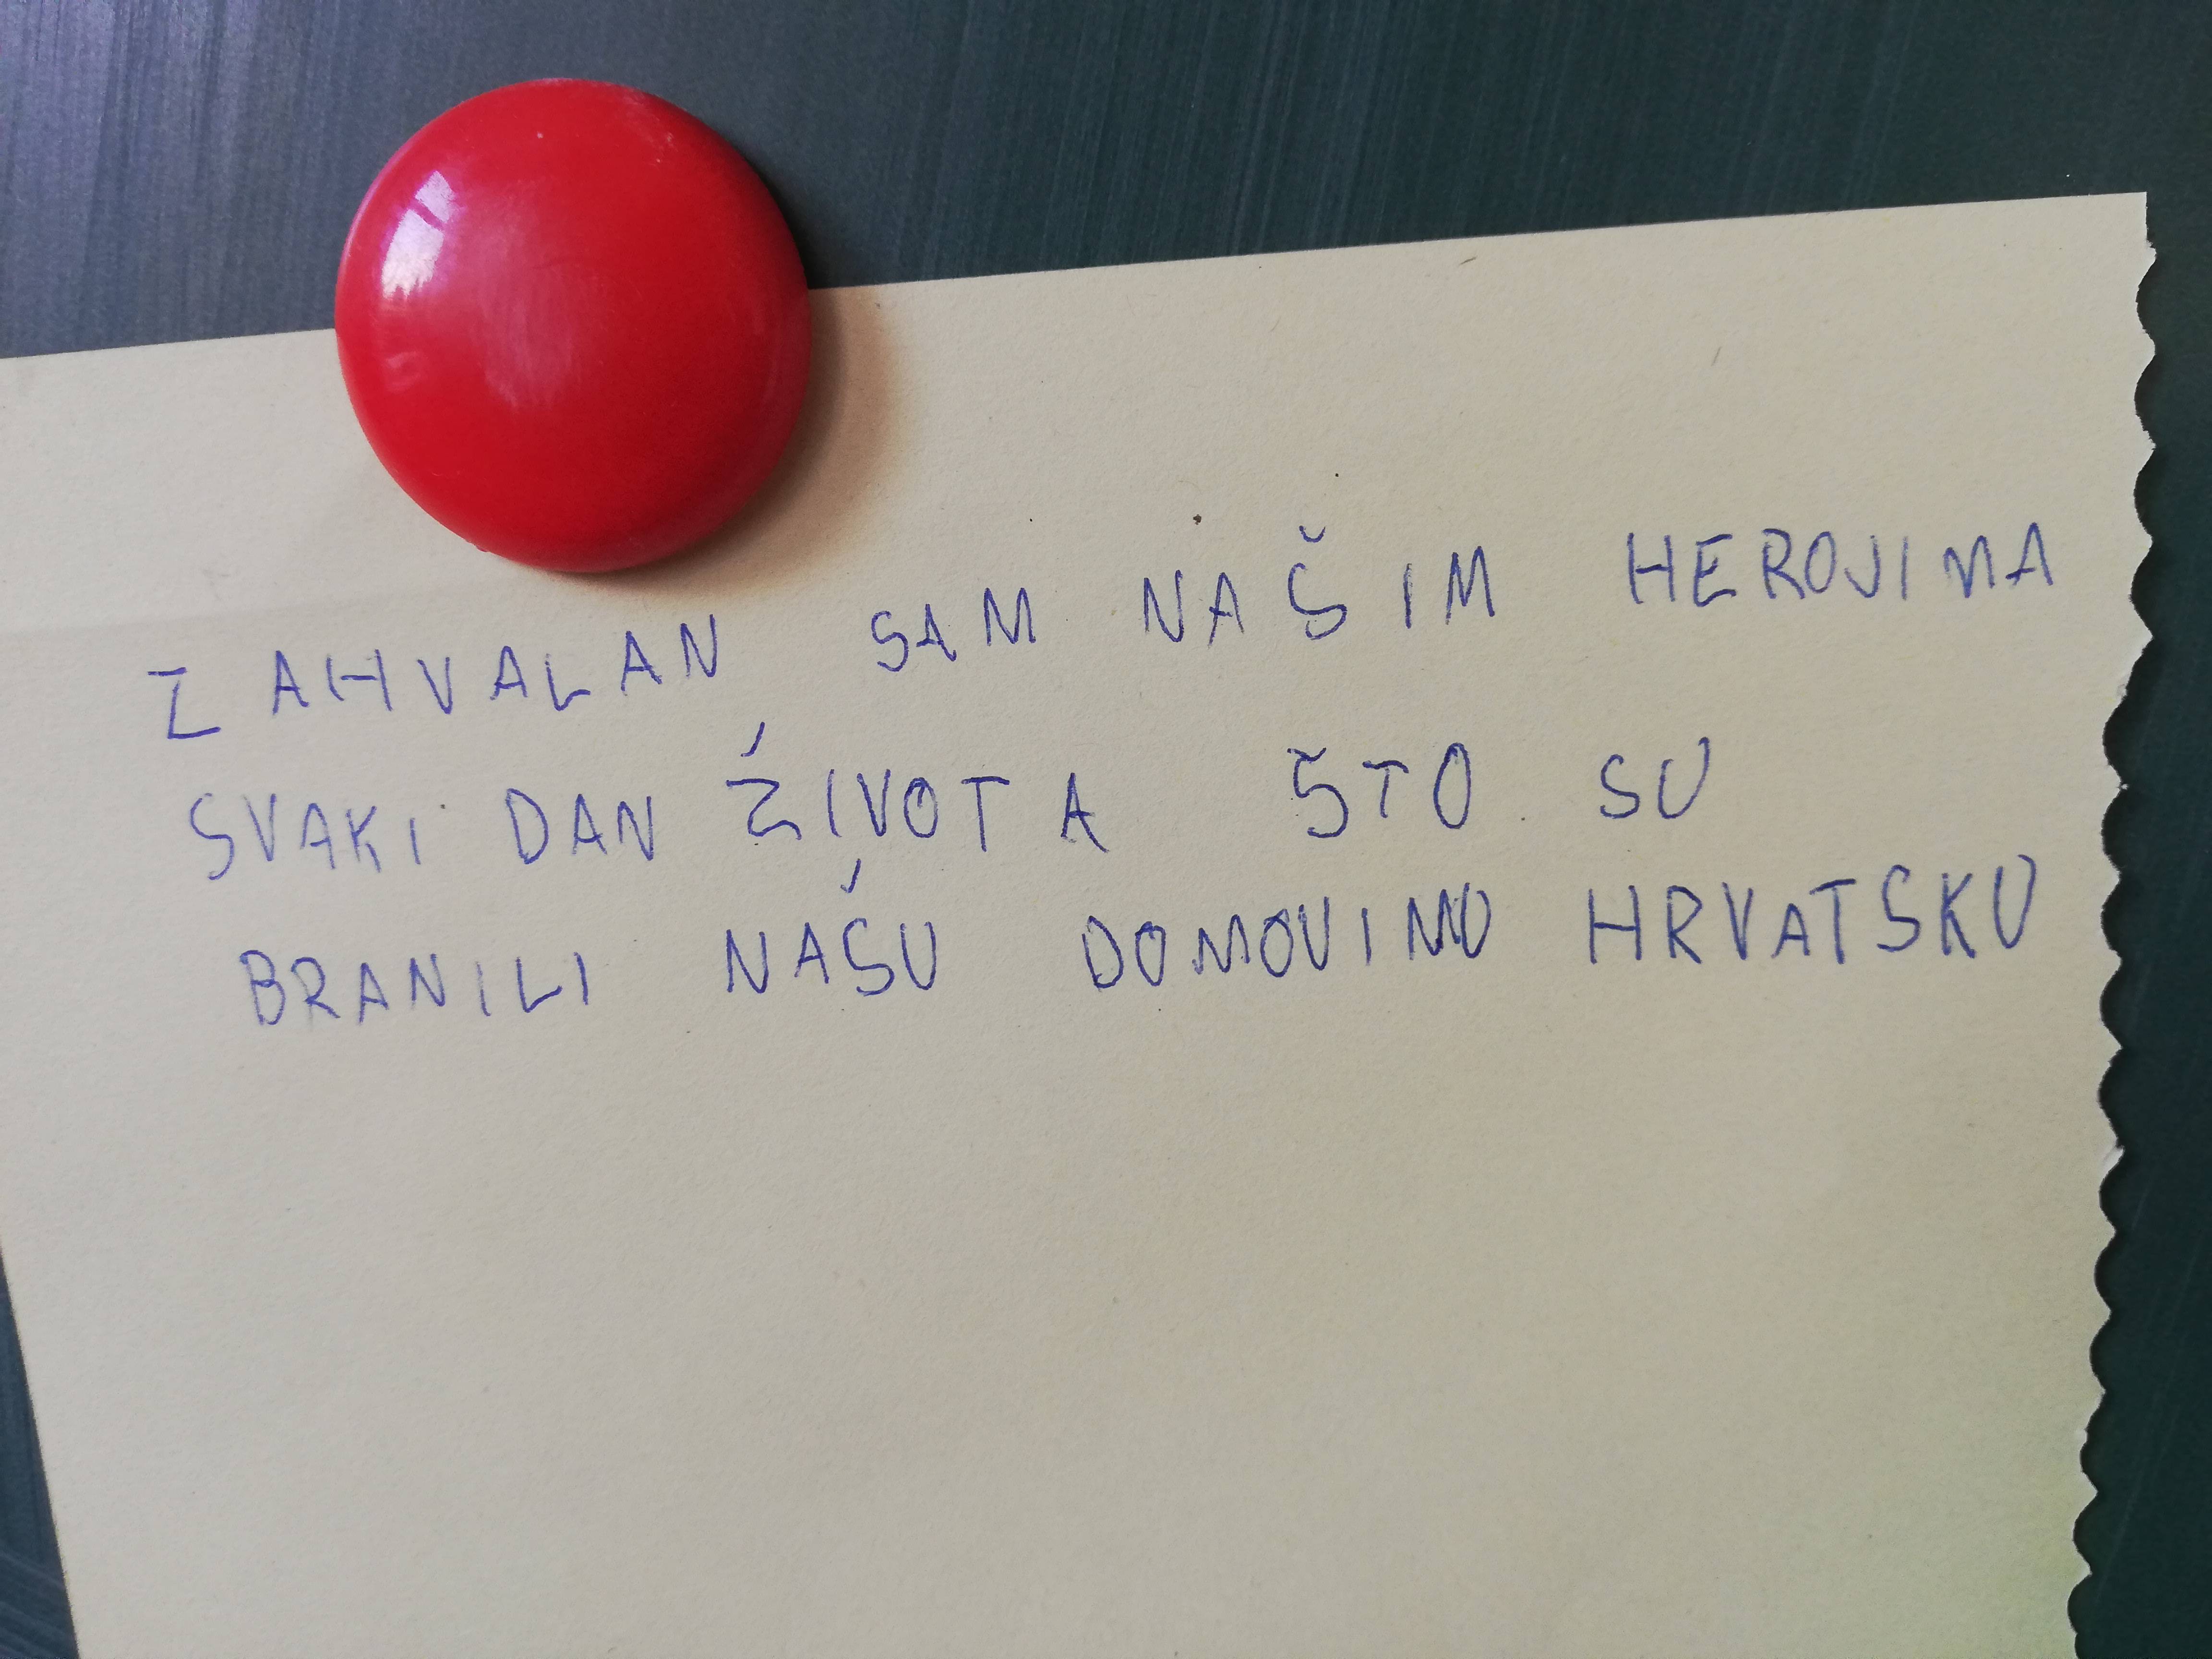 ZAHVALAN SAM NAŠIM HEROJIMA
SVAKI DAN ŽIVOTA ŠTO SU
BRANILI NAŠU DOMOVINU HRVATSKU